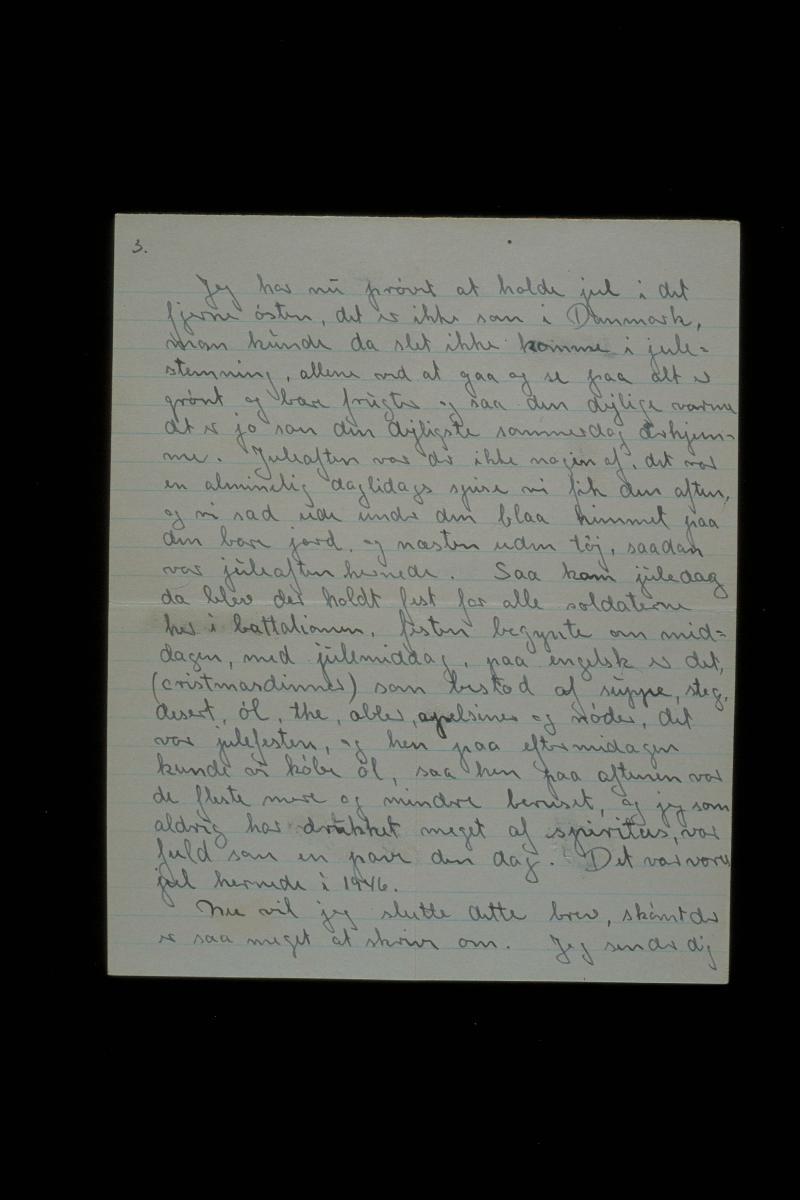 3.
Jeg har nu prøvet at holde jul i det
fjerne østen, det er ikke som i Danmark,
man kunde da slet ikke komme i jule=
stemning, allene ved at gaa og se paa alt er
grønt og bare frugter og saa den dejlige varme
det er jo som den dejligste sommerdag derhjem=
me. Juleaften var der ikke nogen af, det var
en almindelig daglidags spise vi fik den aften,
og vi sad ude under den blaa himmel paa
den bare jord, og næsten uden tøj, saadan
var juleaften hernede. Saa kom juledag
da blev der holdt fest for alle soldaterne
her i battalionen, festen begynte om mid=
dagen, med julemiddag, paa engelsk er det,
(cristmasdinner) som bestod af suppe, steg,
desert, øl, the, abler, apelsiner og nøder, det
var julefesten, og hen paa eftermidagen
kunde vi købe øl, saa hen paa aftenen var
de fleste mere og mindre beruset, og jeg som
aldrig har drukket meget af spiritus, var
fuld som en pave den dag. Det var vores
jul hernede i 1946.
Nu vil jeg slutte dette brev, skønt der
er saa meget at skrive om. Jeg sender dig